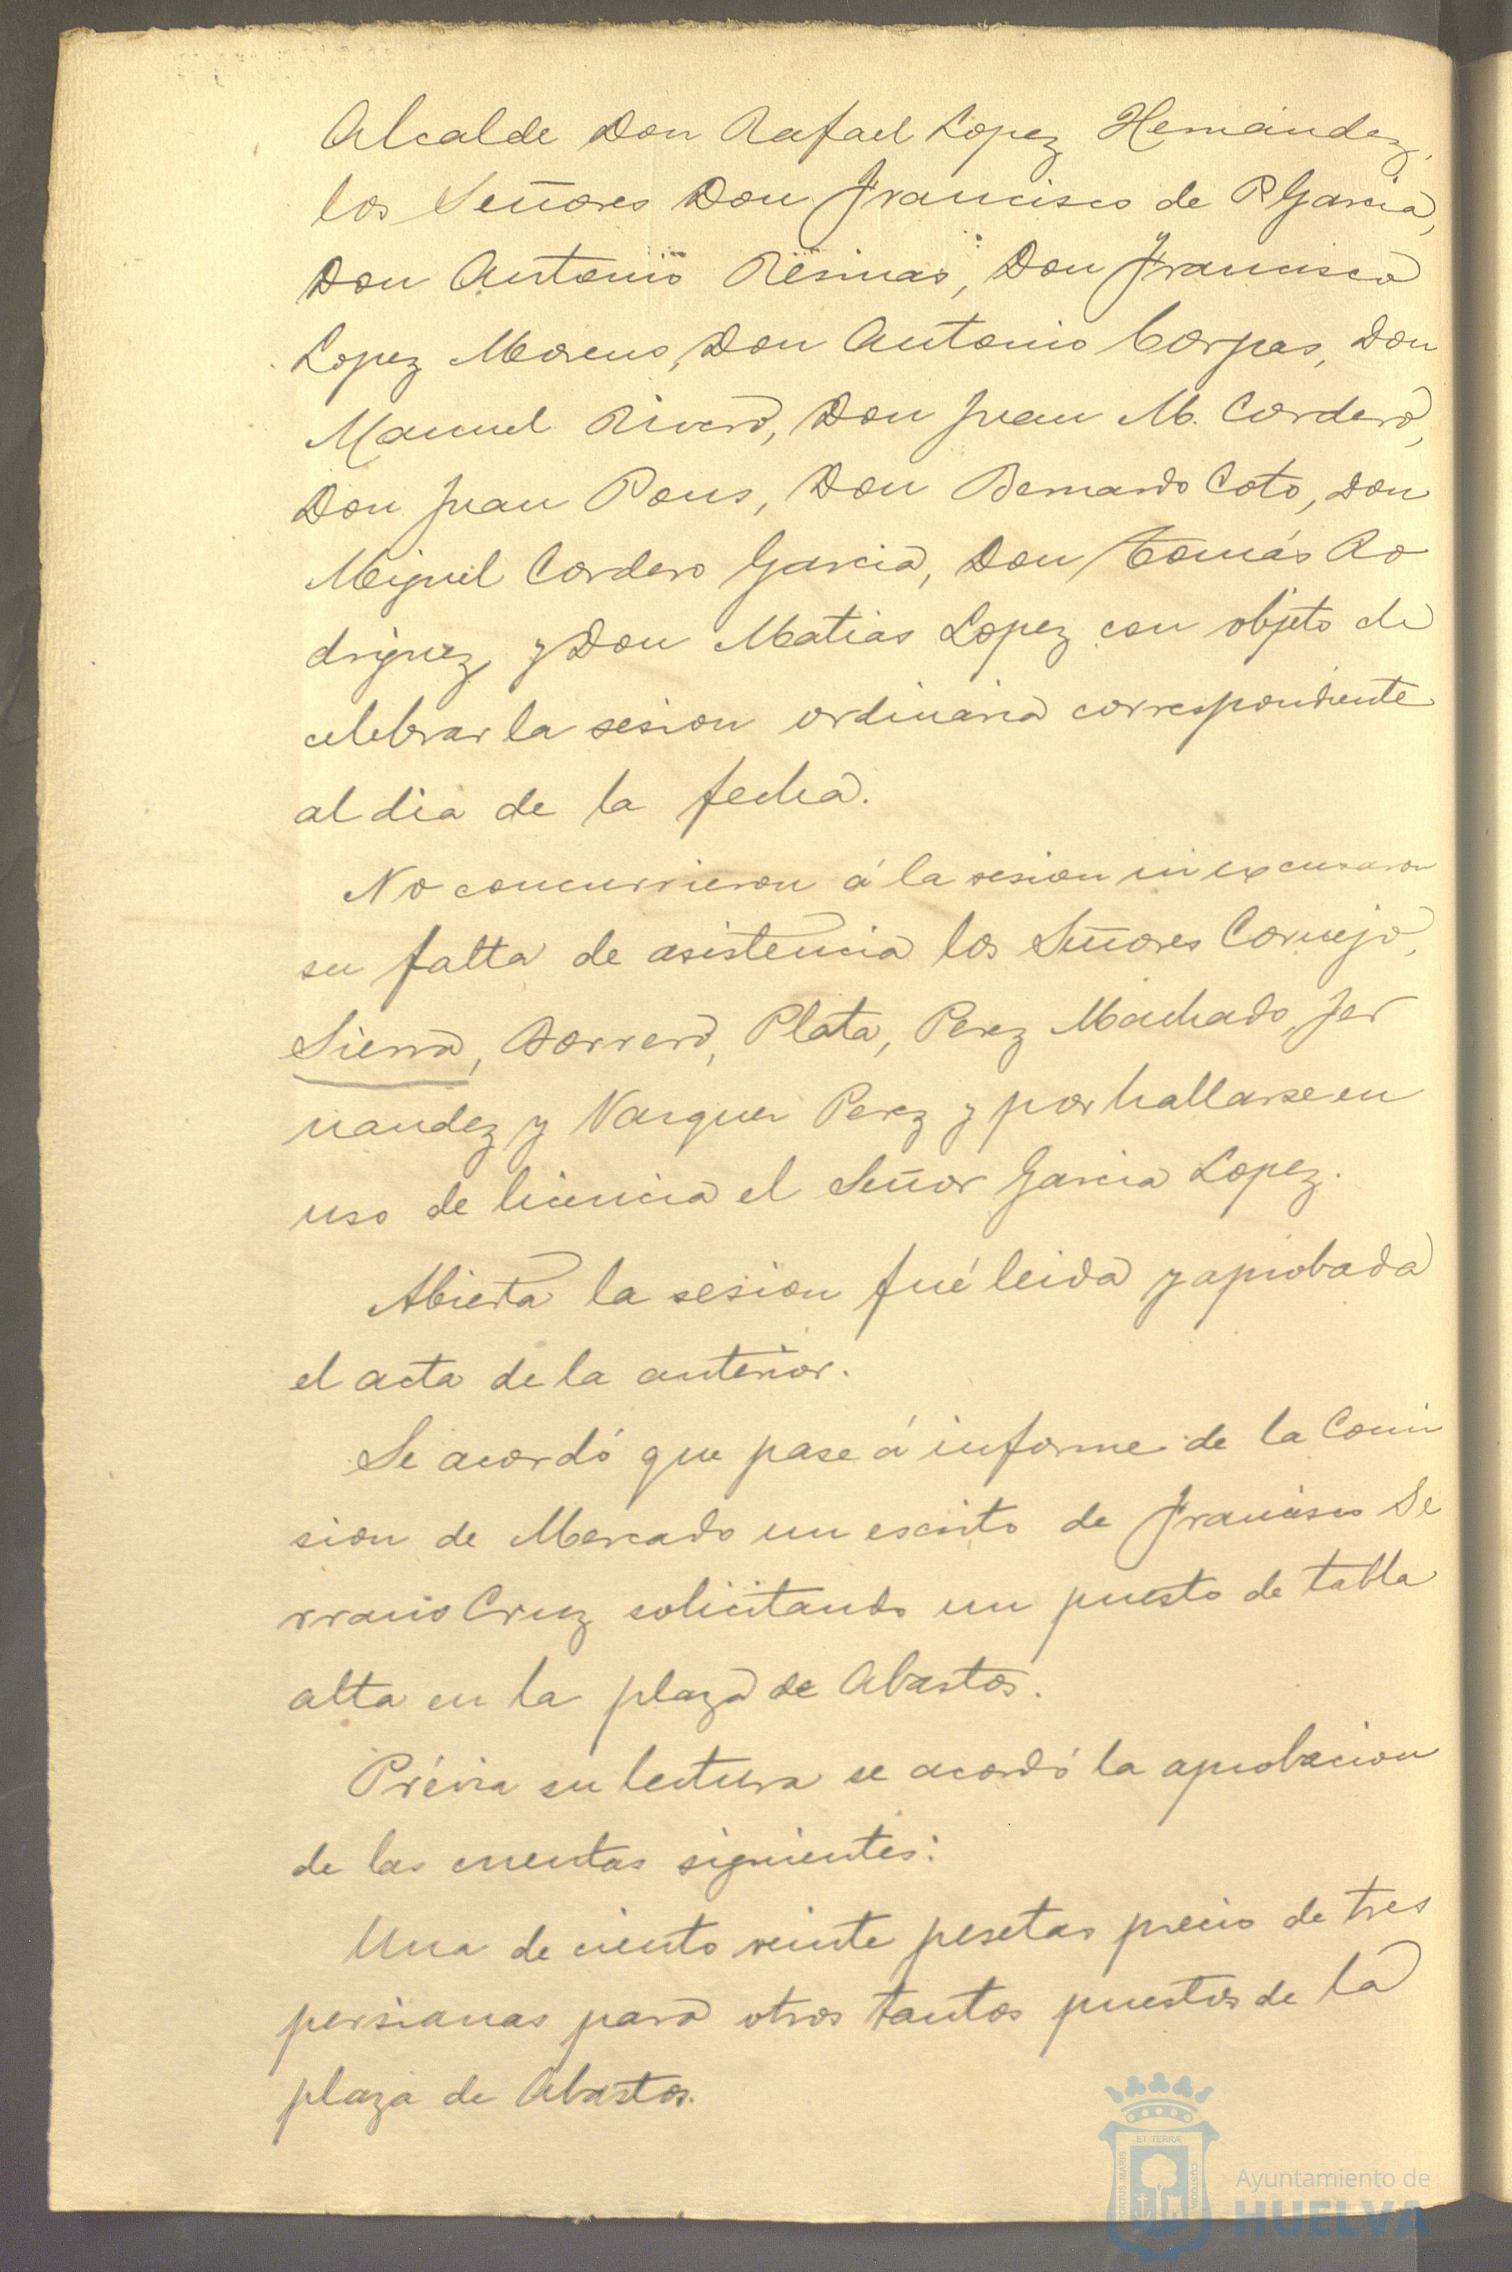 Alcalde Don Rafael Lopez Hernández,
los Señores Don Francisco de P. Garcia,
Don Antonio Resinas, Don Francisco
Lopez Moreno, Don Antonio Corpas, Don
Manuel Rivero, Don Juan M. Cordero,
Don Juan Pons, Don Bernardo Coto, Don
Miguel Cordero Garcia, Don Tomás Ro
driguez, y Don Matias Lopez con objeto de
celebrar la sesion ordinaria correspondiente
al dia de la fecha.
No concurrieron á la sesion ni excusaron
su falta de asistencia los Señores Cornejo,
Sierra, Borrero, Plata, Perez Machado, Fer
nandez y Vazquez Perez y por hallarse en
uso de licencia el Señor Garcia Lopez.
Abierta la sesion fué leida y aprobada
el acta de la anterior.
Se acordó que pase á informe de la Comi
sion de Mercado un escrito de Francisco Se
rrano Cruz solicitando un puesto de tabla
alta en la plaza de Abastos.
Prévia su lectura se acordó la aprobacion
de las cuentas siguientes:
Una de ciento veinte pesetas precio de tres
persianas para otros tantos puestos de la
plaza de Abastos.
PORTUS MARIS ET TERRÆ CUSTODIA
Ayuntamiento de
HUELVA